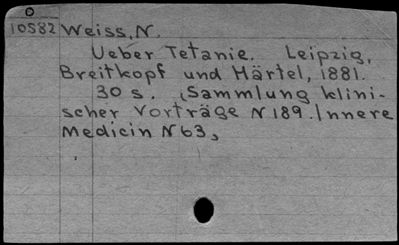 D
10582 Weiss, N.
Ueber Tetanie. Leipzig,
Breitkopf und Härtel, 1881.
30 s. (Sammlung klini-
scher Vorträge N 189. Innere
Medicin N 63,